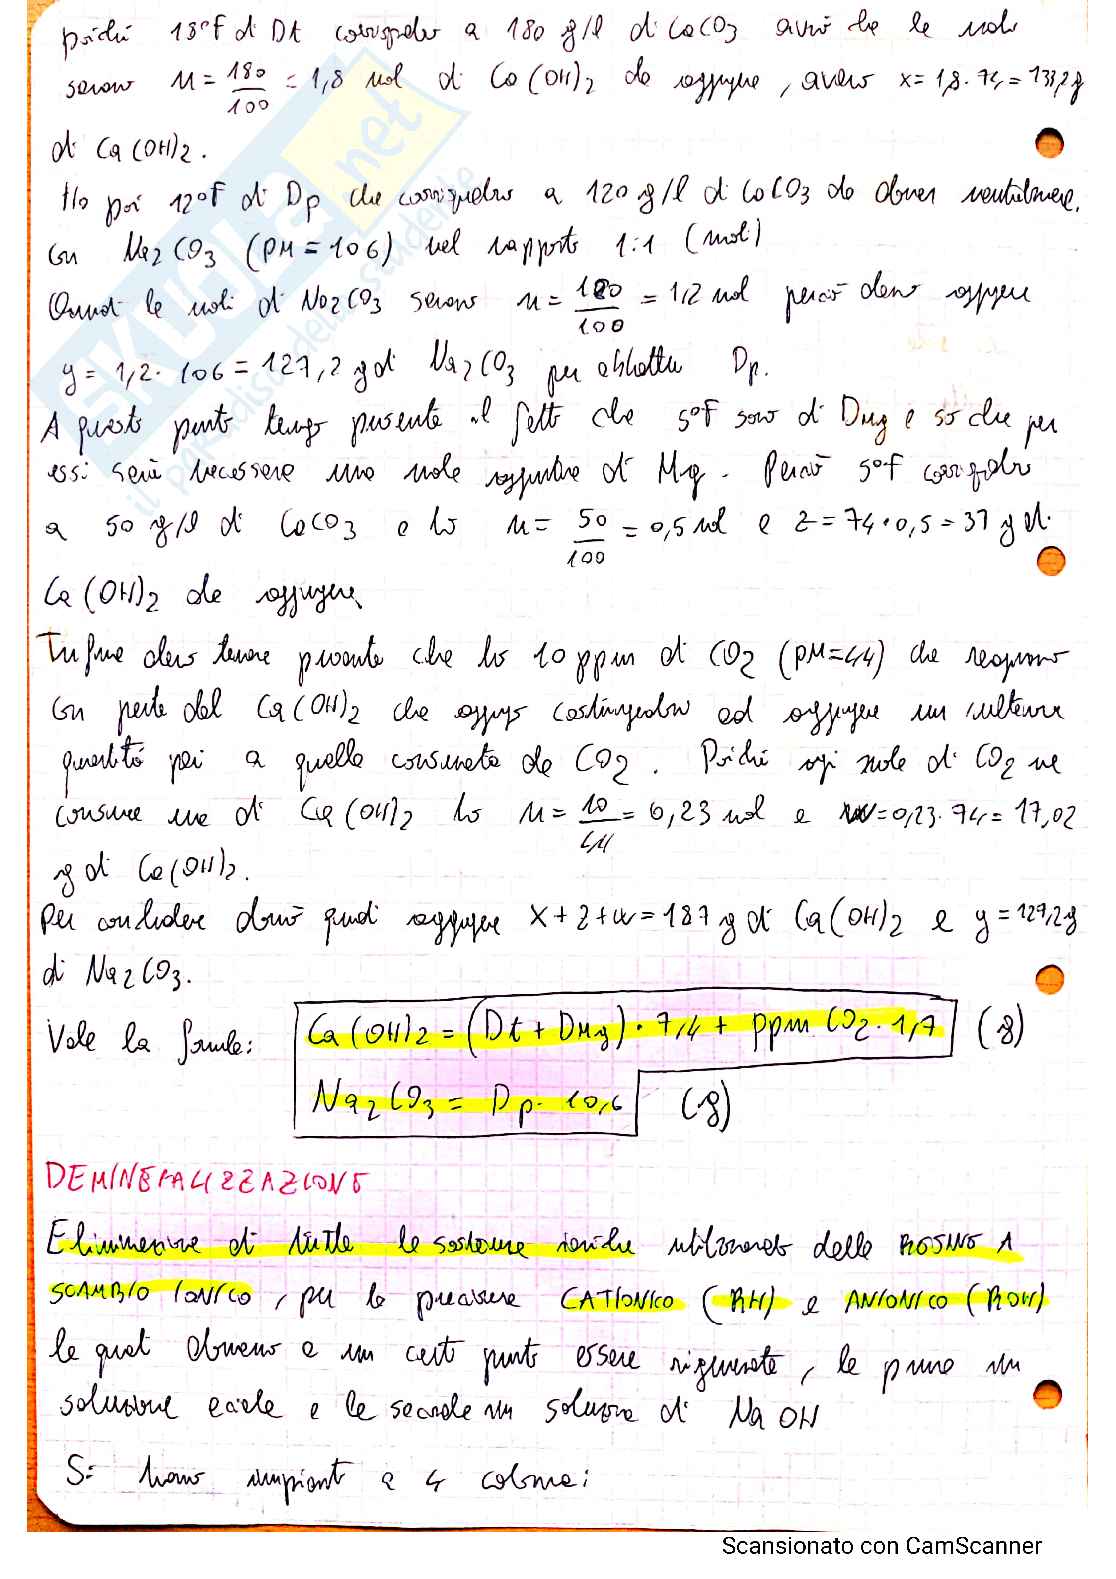 poiché 18°F di Dt corrispondono a 180 g/l di CaCO3 avrò che le moli
saranno n = 180/100 = 1,8 mol di Ca(OH)2 da aggiungere, ovvero x = 1,8·74 = 133,2 g
di Ca(OH)2.
Ho poi 12°F di Dp che corrispondono a 120 g/l di CaCO3 da dover neutralizzare
con Na2CO3 (PM=106) nel rapporto 1:1 (moli)
Quindi le moli di Na2CO3 saranno n = 120/100 = 1,2 mol perciò devo aggiungere
y = 1,2·106 = 127,2 g di Na2CO3 per abbattere Dp.
A questo punto tengo presente il fatto che 5°F sono di DMg e so che per
essi sarà necessaria una mole aggiuntiva di Mg. Perciò 5°F corrispondono
a 50 g/l di CaCO3 e ho n = 50/100 = 0,5 mol e z = 74·0,5 = 37 g di
Ca(OH)2 da aggiungere.
Infine devo tenere presente che ho 10 ppm di CO2 (PM=44) che reagiranno
con parte del Ca(OH)2 che aggiungo costringendomi ad aggiungere un'ulteriore
quantità pari a quella consumata da CO2. Poiché ogni mole di CO2 ne
consuma una di Ca(OH)2 ho n = 10/44 = 0,23 mol e w = 0,23·74 = 17,02
g di Ca(OH)2.
Per concludere dovrò quindi aggiungere x+z+w = 187 g di Ca(OH)2 e y = 127,2 g
di Na2CO3.
Vale la formula: Ca(OH)2 = (Dt + DMg)·7,4 + ppm CO2·1,7 (g)
Na2CO3 = Dp·10,6 (g)
DEMINERALIZZAZIONE
Eliminazione di tutte le sostanze ioniche utilizzando delle RESINE A
SCAMBIO IONICO, per la precisione CATIONICO (RH) e ANIONICO (ROH)
le quali dovranno a un certo punto essere rigenerate, le prime in
soluzione acida e le seconde in soluzione di NaOH
Si hanno impianti a 4 colonne:
SKUOLA.net
il paradiso dello studente
Scansionato con CamScanner